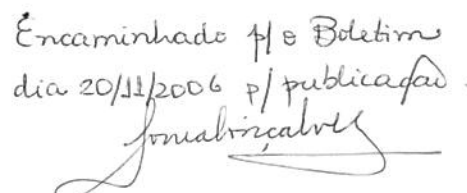 Encaminhado p/ o Boletim
dia 20/11/2006 p/ publicação.